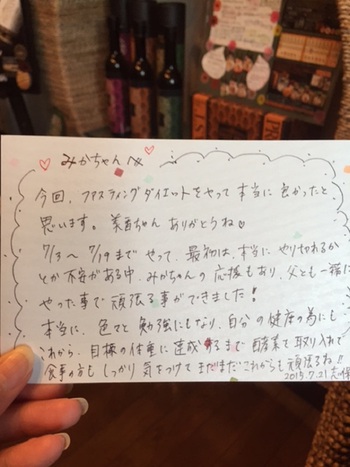 みかちゃんへ
今回、ファスティングダイエットをやって本当に良かったと
思います。美香ちゃん ありがとうね♡
7/3〜7/19まで やって、最初は、本当に やり切れるか
とか不安がある中、みかちゃんの応援もあり、父とも一緒に
やった事で頑張る事ができました!
本当に、色々と勉強にもなり、自分の健康の為にも
これから、目標の体重に達成するまで酵素で取り入れて
食事の方も しっかり気をつけて まだまだこれからも頑張るね!!
2015.7.21